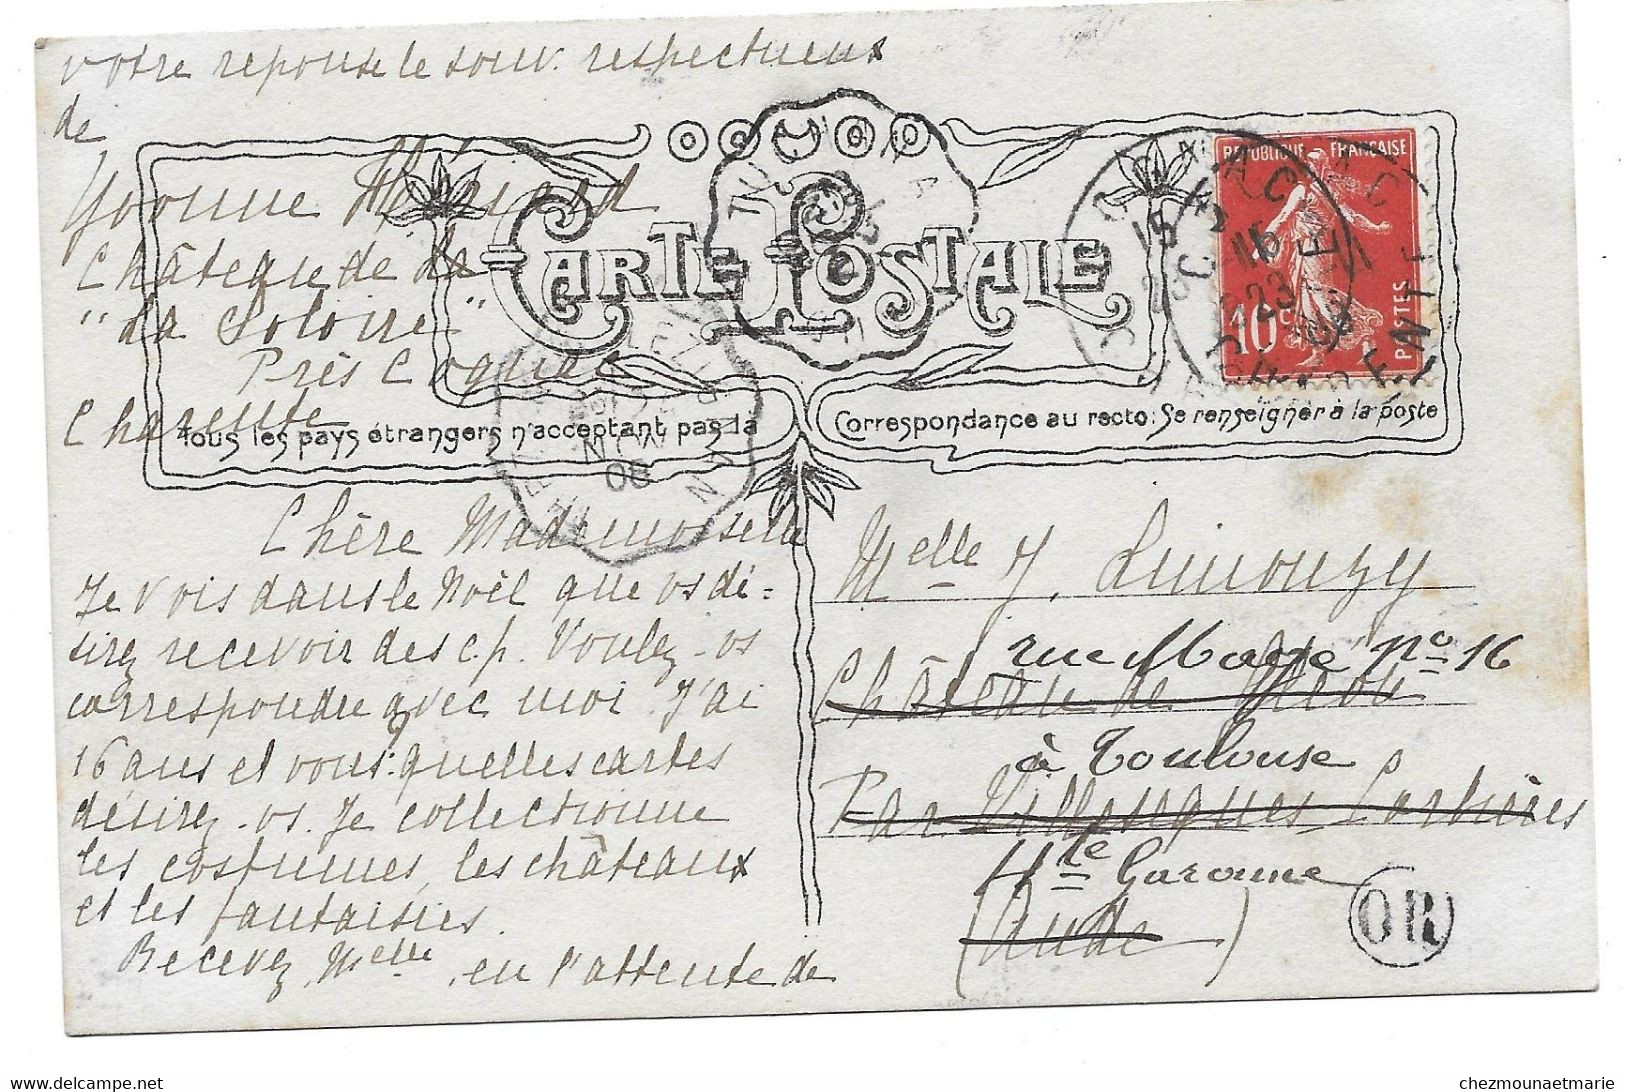 votre reponse le souv. respectueux
de
Yvonne
Château de la
"La Soloire"
Près Cognac
Charente
CARTE POSTALE
Tous les pays étrangers n'acceptant pas la
Correspondance au recto: Se renseigner à la poste
REPUBLIQUE FRANCAISE
10c
POSTES
NOV
08
Chère Mademoiselle
Je vois dans le Noël que vs dé-
sirez recevoir des c.p. Voulez-vs
correspondre avec moi. J'ai
16 ans et vous: quelles cartes
désirez-vs. Je collectionne
les costumes, les châteaux
et les fantaisies.
Recevez, Melle, en l'attente de
Melle J. Limouzy
rue Mage no 16
Château de
à Toulouse
Par Villesèques Corbières
Hte Garonne
(Aude)
OR
chezmounaetmarie